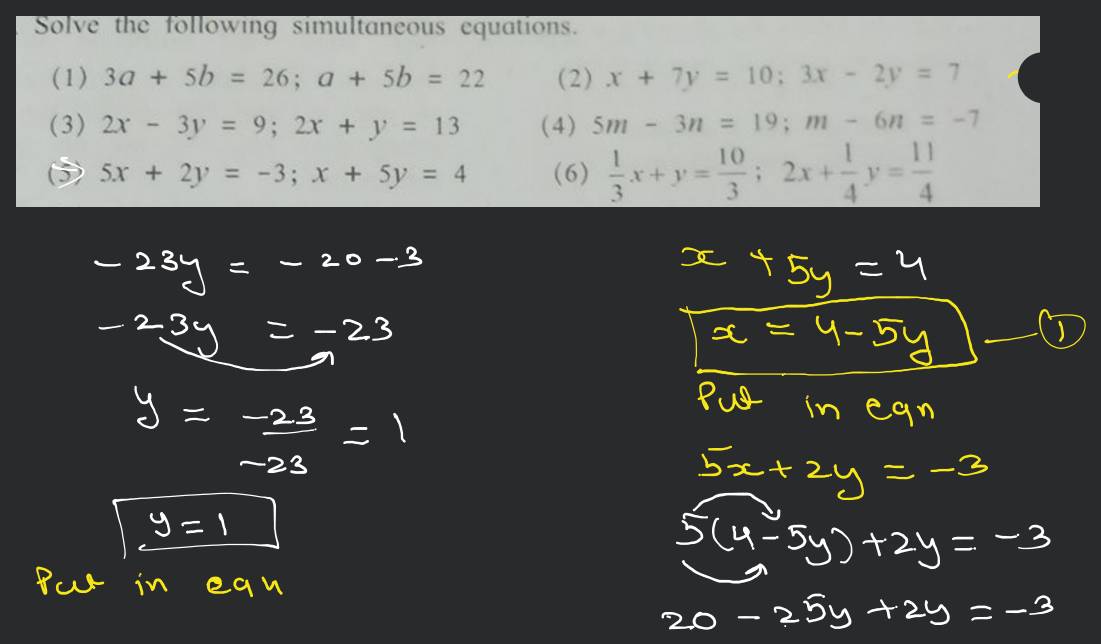 Solve the following simultaneous equations.
(1) 3a + 5b = 26; a + 5b = 22
(2) x + 7y = 10; 3x - 2y = 7
(3) 2x - 3y = 9; 2x + y = 13
(4) 5m - 3n = 19; m - 6n = -7
(5) 5x + 2y = -3; x + 5y = 4
(6) 1/3 x + y = 10/3; 2x + 1/4 y = 11/4
x + 5y = 4
x = 4-5y — ①
Put in eqn
5x + 2y = -3
5(4-5y) + 2y = -3
20 - 25y + 2y = -3
-23y = -20-3
-23y = -23
y = -23/-23 = 1
y = 1
Put in eqn